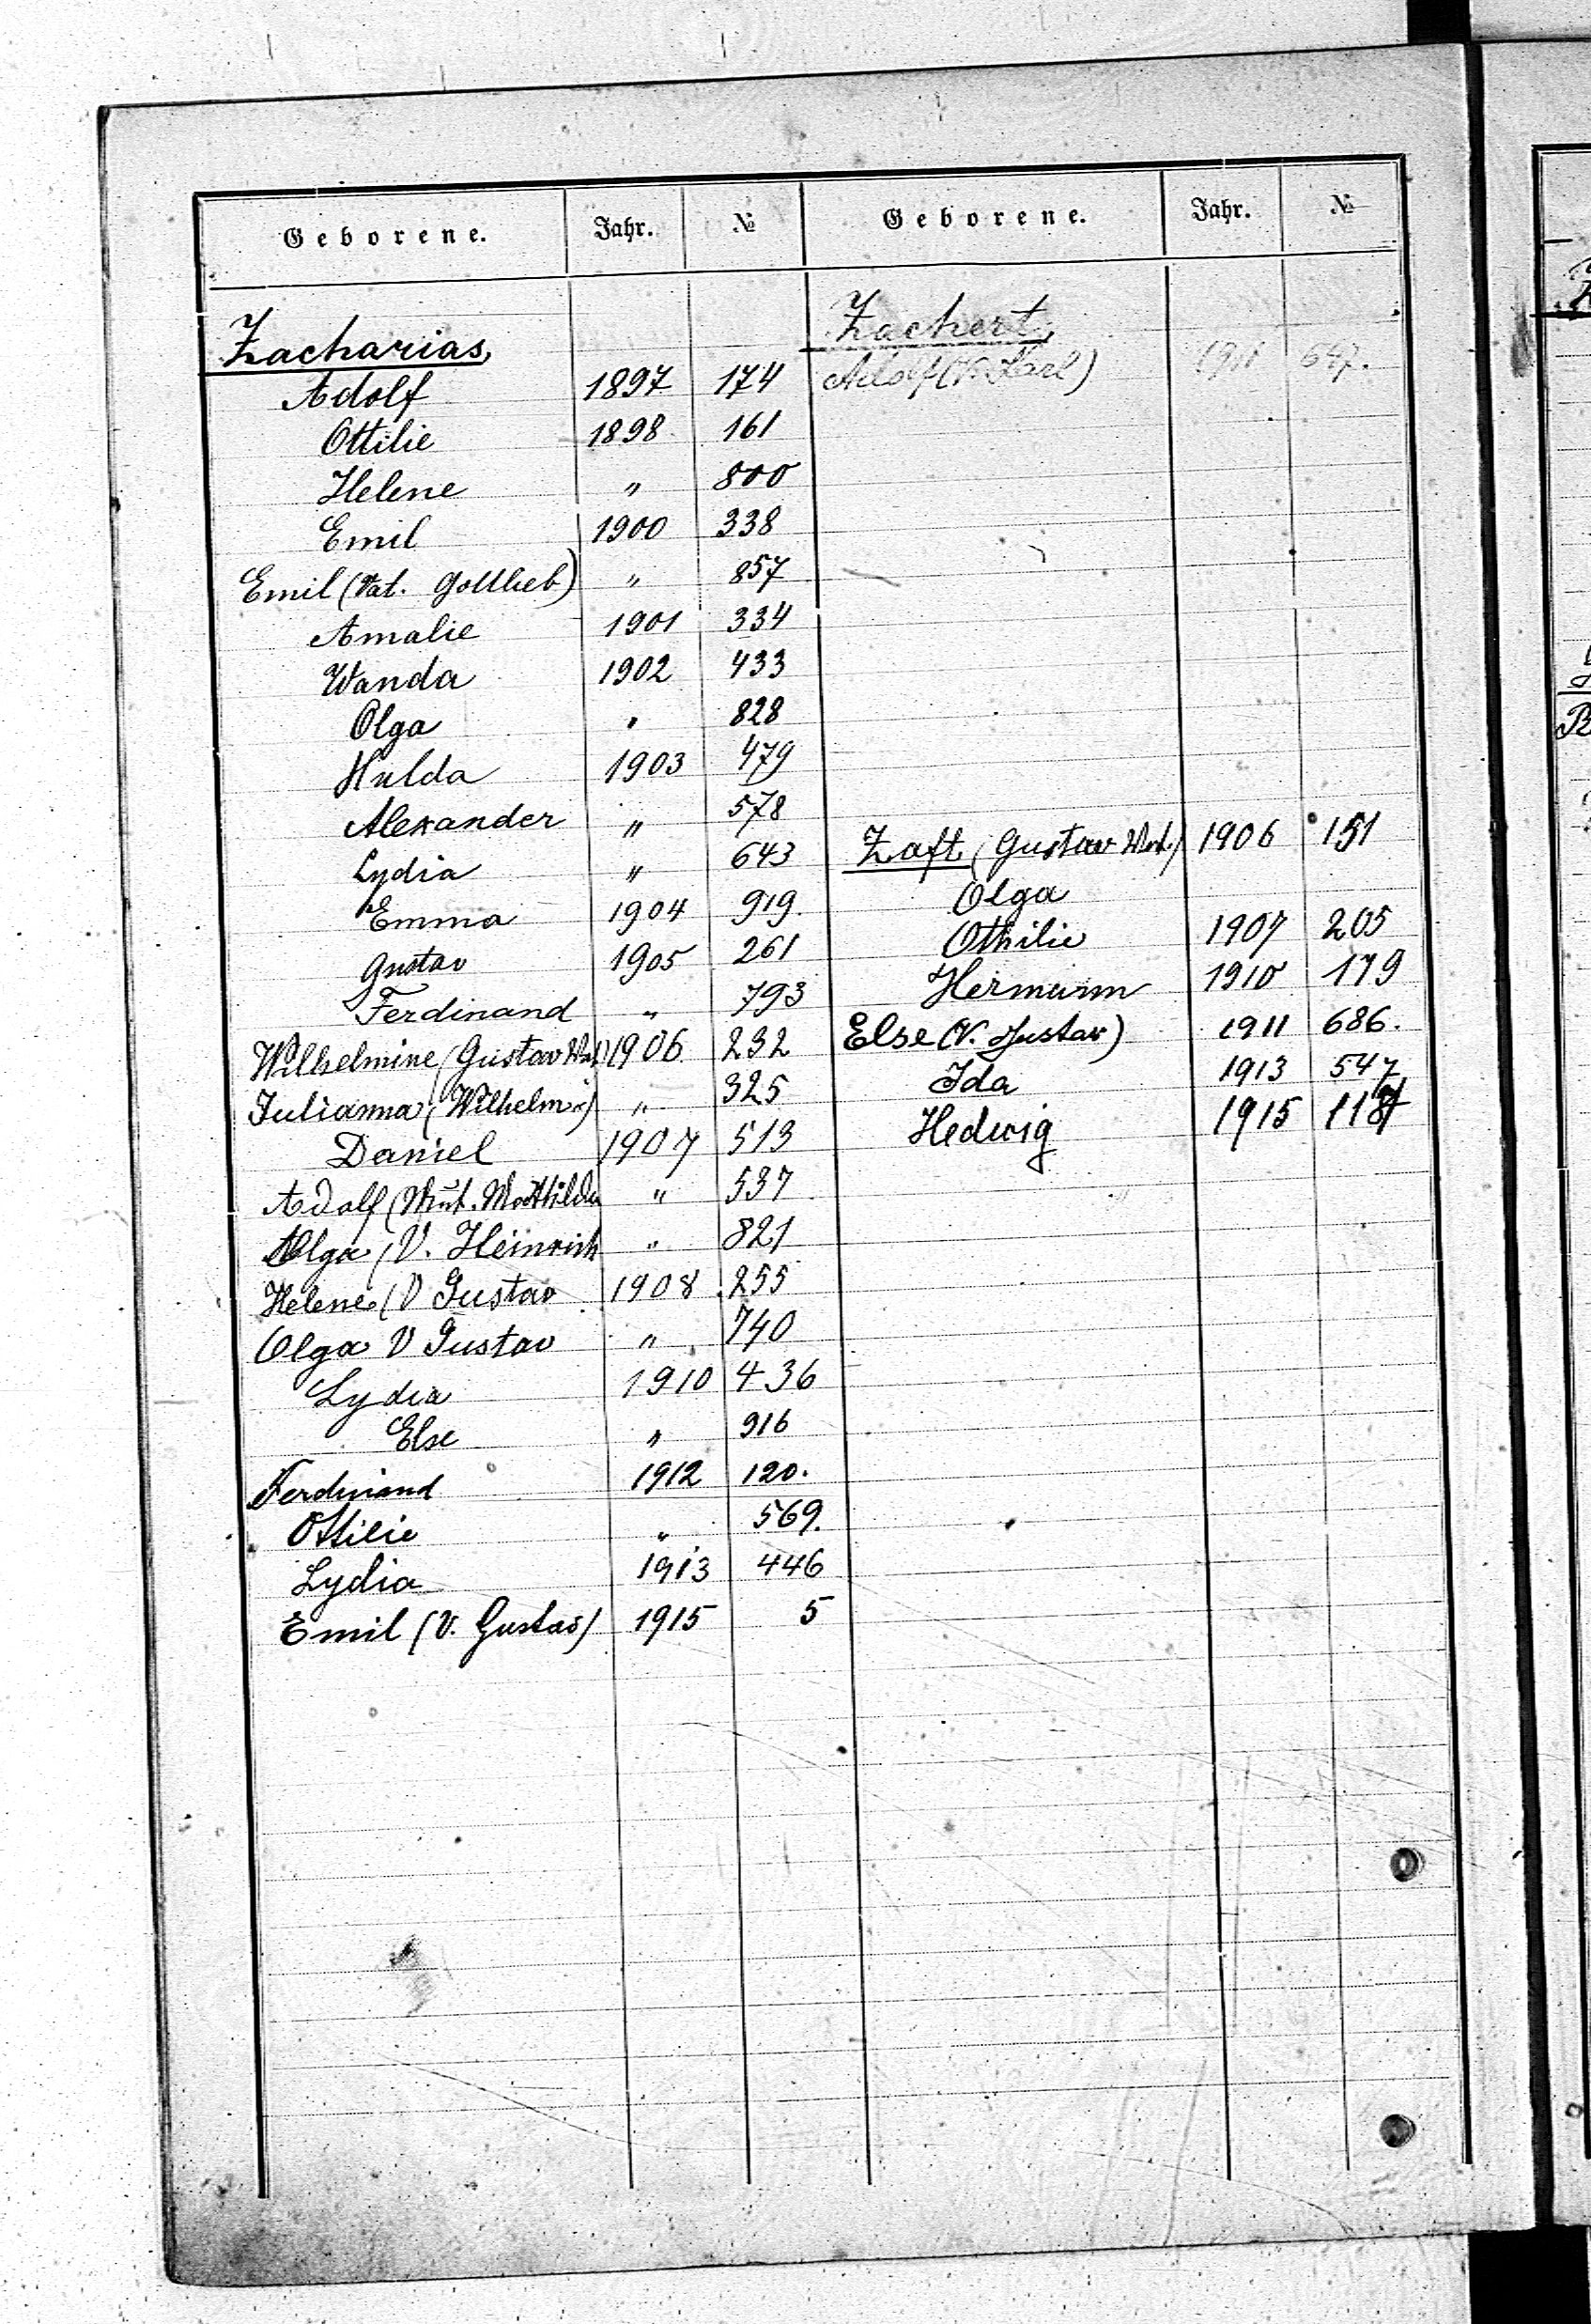 Geborene. Jahr. №
Zacharias,
Adolf 1897 174
Ottilie 1898 161
Helene " 800
Emil 1900 338
Emil (Vat. Gottlieb) " 857
Amalie 1901 334
Wanda 1902 433
Olga " 828
Hulda 1903 479
Alexander " 578
Lydia " 643
Emma 1904 919.
Gustav 1905 261
Ferdinand " 793
Wilhelmine (Gustav Vat.) 1906 232
Julianna (Wilhelm) " 325
Daniel 1907 513
Adolf (Mut. Mathilde " 537
Olga (V. Heinrich " 821
Helene (V Gustav 1908 255
Olga V Gustav " 740
Lydia 1910 436
Else " 916
Ferdinand 1912 120.
Ottilie " 569.
Lydia 1913 446
Emil (V. Gustav) 1915 5
Geborene. Jahr. №
Zachert,
Adolf (V. Karl) 1911 647.
Zaft (Gustav Vat.) 1906 151
Olga
Othilie 1907 205
Hermann 1910 179
Else (V. Gustav) 1911 686.
Ida 1913 547
Hedwig 1915